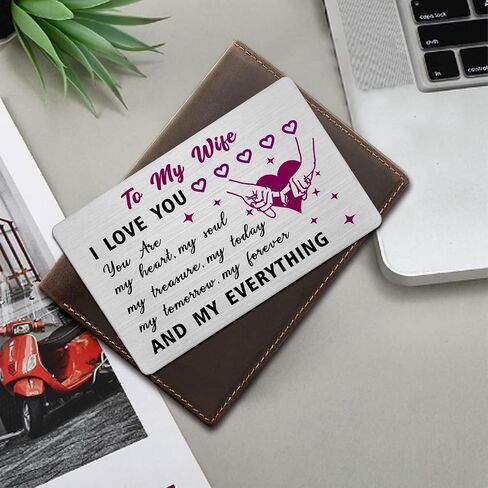 To My Wife
I LOVE YOU
You Are
my heart, my soul
my treasure, my today
my tomorrow, my forever
AND MY EVERYTHING
caps lock
shift
fn
control